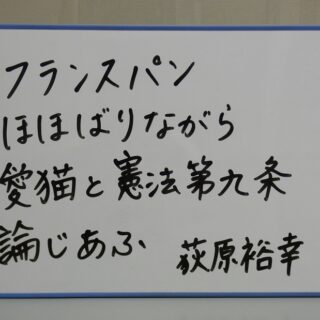 フランスパン
ほほばりながら
愛猫と憲法第九条
論じあふ 荻原裕幸